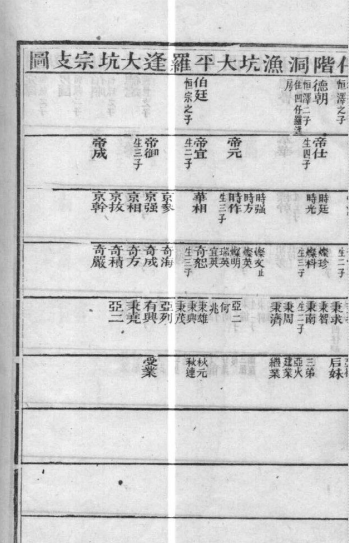 階洞漁坑大平羅逢大坑宗支圖
恒澤之子
德朝
恒澤二子
住凹仔羅逢
房
伯廷
恒宗之子
帝仕
生四子
帝元
帝宜
生二子
帝御
生三子
帝成
時廷
時光
時强
時方
時作
生三子
華相
京參
京强
京相
京技
京幹
生二子
燦珍
燦料
生三子
燦水止
燦英
燦明
瑞英
宜英
奇恕
生三子
奇海
奇成
奇方
奇積
奇嚴
秉求
秉智
秉南
生二子
秉周
秉濟
亞二
何
兆
秉雄
秉興
秉茂
亞列
有興
秉堯
亞二
后妹
三弟
亞火
建業
纘業
秋元
秋達
受業